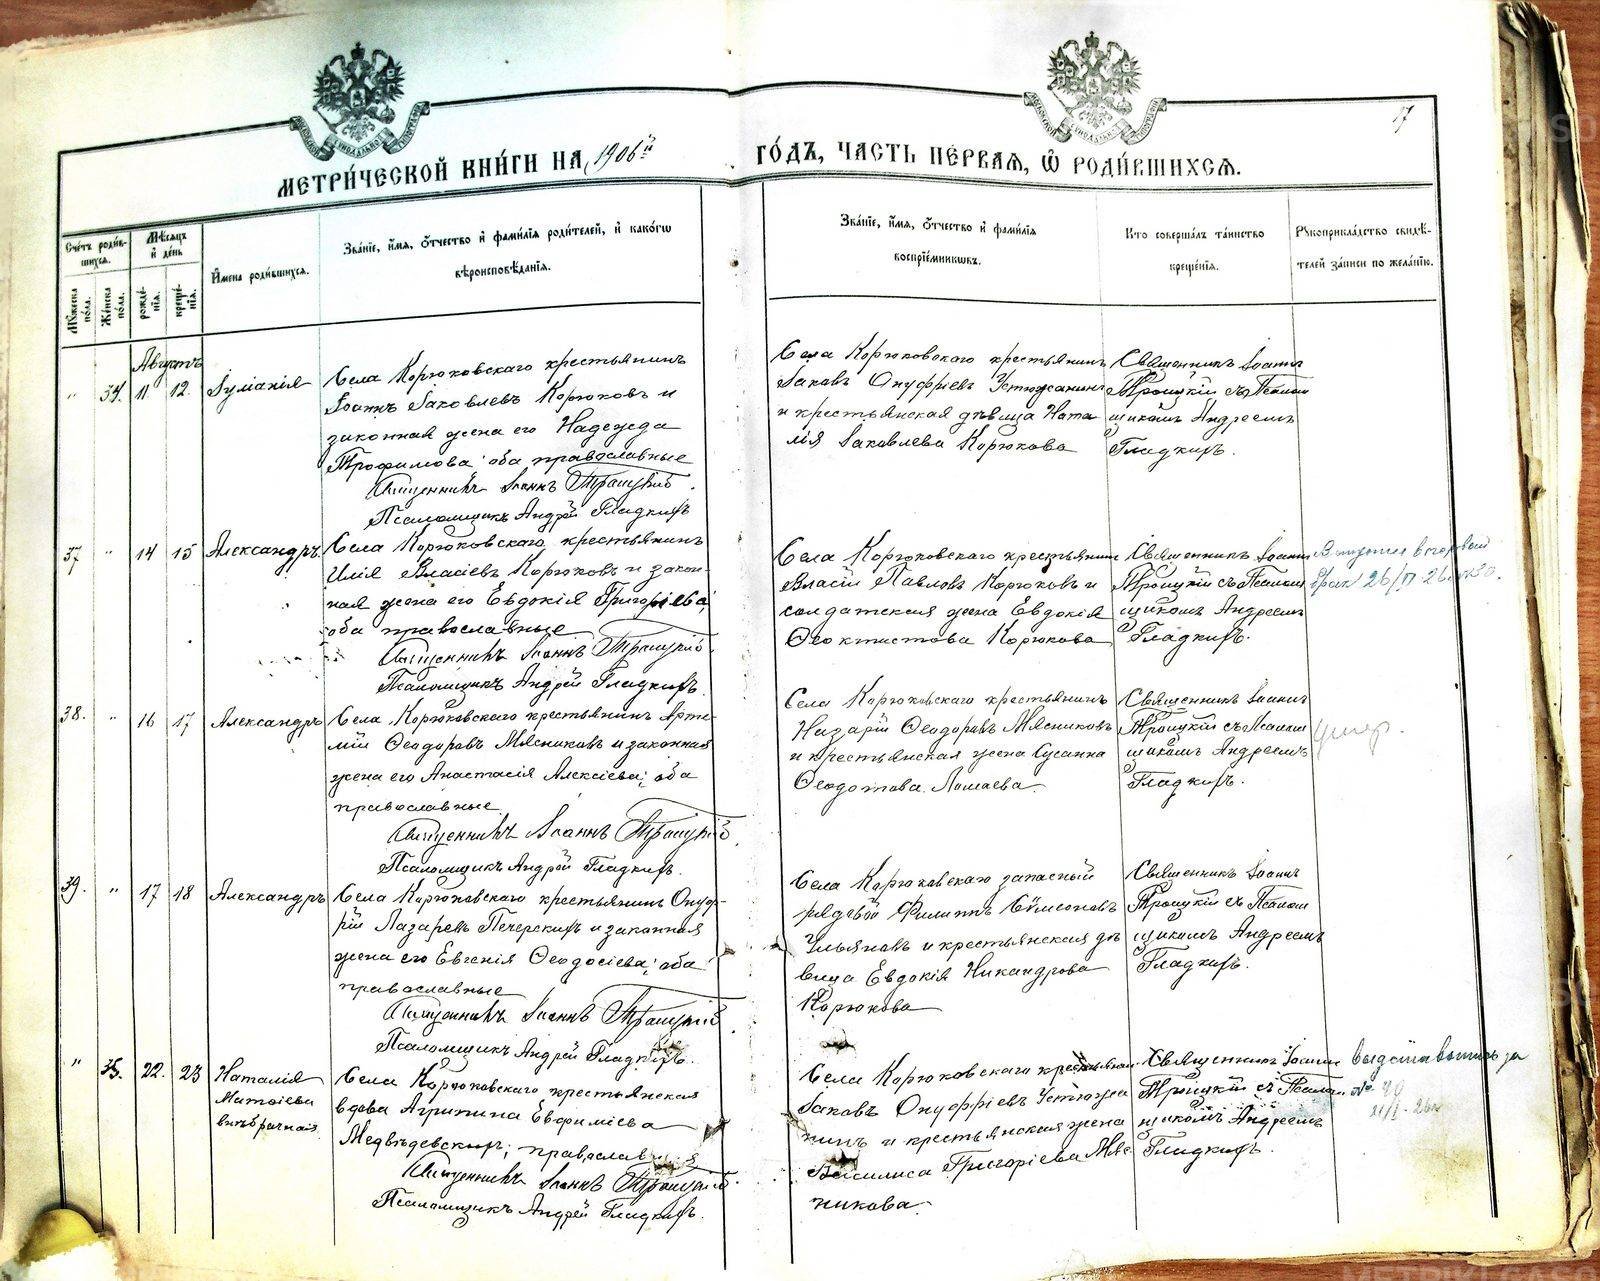 17
МЕТРИ́ЧЕСКОЙ КНИ́ГИ НА 1906й ГО́ДЪ, ЧАСТЬ ПЕ́РВАЯ, Ѽ РОДИ́ВШИХСѦ.
Сче́тъ роди́в-
шихся.
Мꙋ́жеска по́ла.
Же́нска по́ла.
Мѣ́сяцъ и҆ де́нь
рожде́-
нїя.
креще́-
нїя.
И҆мена роди́вшихся.
Зва́нїе, и҆́мя, ѻ҆́тчество и҆ фами́лїя роди́телей, и҆ како́гѡ
вѣроисповѣ́данїя.
Зва́нїе, и҆́мя, ѻ҆́тчество и҆ фами́лїя
воспрїе́мникѡвъ.
Кто соверша́лъ та́инство
креще́нїя.
Рꙋкоприкла́дство свидѣ́-
телей за́писи по жела́нїю.
Августъ
" 34. 11 12.
Іуліанія
Села Корюковскаго крестьянинъ
Іоаннъ Іаковлевъ Корюковъ и
законная жена его Надежда
Трофимова; оба православные
Священникъ Іоаннъ Троицкій.
Псаломщикъ Андрей Гладкихъ
Села Корюковскаго крестьянинъ
Іаковъ Онуфріевъ Устюжанинъ
и крестьянская дѣвица Ната
лія Іаковлева Корюкова
Священникъ Іоаннъ
Троицкій съ Псалом
щикомъ Андреемъ
Гладкихъ.
37 " 14 15
Александръ.
Села Корюковскаго крестьянинъ
Илія Власіевъ Корюковъ и закон-
ная жена его Евдокія Григоріева;
оба православные
Священникъ Іоаннъ Троицкій.
Псаломщикъ Андрей Гладкихъ.
Села Корюковскаго крестьянинъ
Власій Павловъ Корюковъ и
солдатская жена Евдокія
Ѳеоктистова Корюкова
Священникъ Іоаннъ
Троицкій съ Псалом
щикомъ Андреемъ
Гладкихъ.
брак 26/
38. " 16 17
Александръ
Села Корюковскаго крестьянинъ Арте-
мій Ѳеодоровъ Мясниковъ и законная
жена его Анастасія Алексіева; оба
православные
Священникъ Іоаннъ Троицкій.
Псаломщикъ Андрей Гладкихъ.
Села Корюковскаго крестьянинъ
Назарій Ѳеодоровъ Мясниковъ
и крестьянская жена Сусанна
Ѳеодотова Ломаева
Священникъ Іоаннъ
Троицкій съ Псалом
щикомъ Андреемъ
Гладкихъ.
умер.
39. " 17 18
Александръ
Села Корюковскаго крестьянинъ Онуф-
рій Лазаревъ Печерскихъ и законная
жена его Евгенія Ѳеодосіева; оба
православные
Священникъ Іоаннъ Троицкій.
Псаломщикъ Андрей Гладкихъ.
Села Корюковскаго запасный
рядовой Филиппъ Сѵмеоновъ
Ульяновъ и крестьянская дѣ
вица Евдокія Никандрова
Корюкова
Священникъ Іоаннъ
Троицкій съ Псалом
щикомъ Андреемъ
Гладкихъ.
" 35. 22. 23
Наталія
Матѳіева
внѣбрачная
Села Корюковскаго крестьянская
вдова Агрипина Евфиміева
Медвѣдевскихъ; православная
Священникъ Іоаннъ Троицкій.
Псаломщикъ Андрей Гладкихъ.
Села Корюковскаго крестьянинъ
Іаковъ Онуфріевъ Устюжа
нинъ и крестьянская жена
Василиса Григоріева Мяс
никова
Священникъ Іоаннъ
Троицкій съ Псалом
щикомъ Андреемъ
Гладкихъ.
выдана выпись за
№